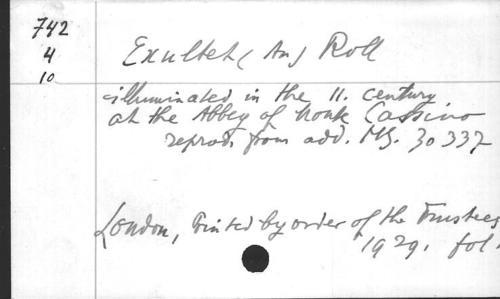 742
4
10
Exultet (An) Roll
illuminated in the 11. century
at the Abbey of Monte Cassino
reprod. from add. MS. 30337
London, Printed by order of the Trustees
1929. fol.